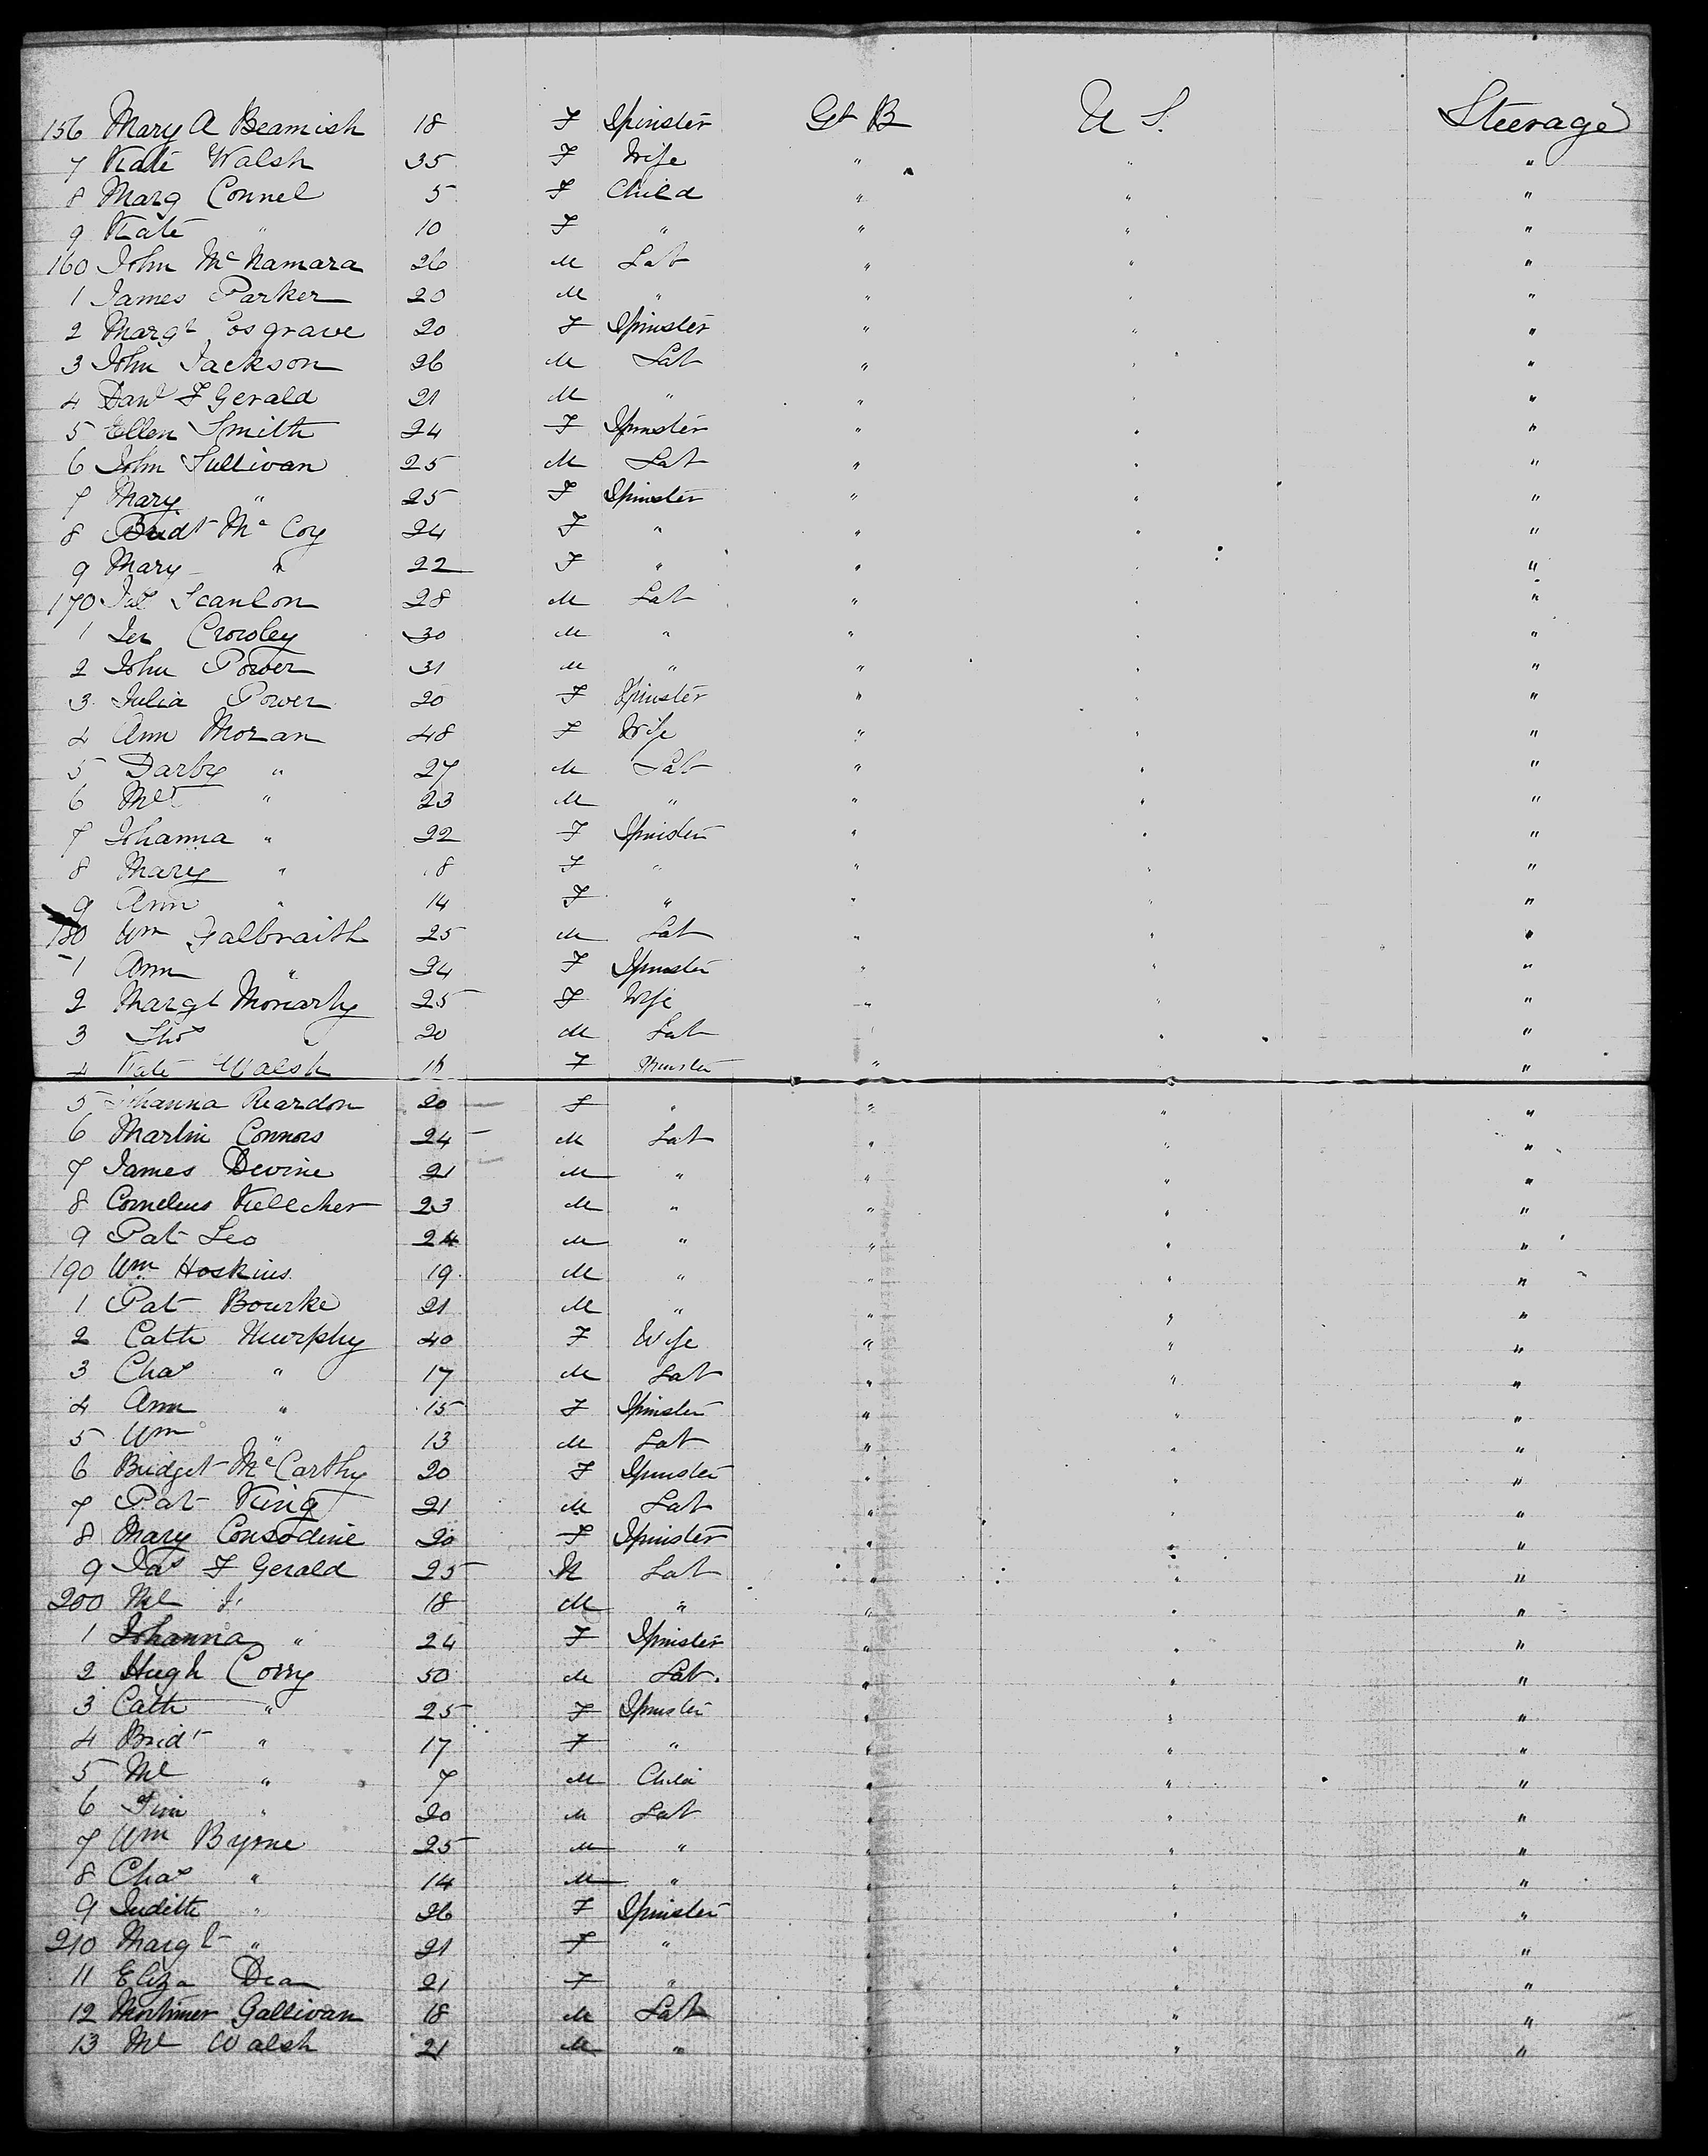 156 Mary A Beamish 18 F Spinster Gt B U S. Steerage
7 Kate Walsh 35 F Wife " " "
8 Marg Connel 5 F Child " " "
9 Kate " 10 F " " " "
160 John McNamara 26 M Lab " " "
1 James Parker 20 M " " " "
2 Margt Cosgrave 20 F Spinster " " "
3 John Jackson 26 M Lab " " "
4 Danl F Gerald 21 M " " " "
5 Ellen Smith 24 F Spinster " " "
6 John Sullivan 25 M Lab " " "
7 Mary " 25 F Spinster " " "
8 Bridt McCoy 24 F " " " "
9 Mary " 22 F " " " "
170 Scanlon 28 M Lab " " "
1 Jer Crowley 30 M " " " "
2 John Power 31 M " " " "
3 Julia Power 20 F Spinster " " "
4 Ann Moran 48 F Wife " " "
5 Darby " 27 M Lab " " "
6 Ml " 23 M " " " "
7 Johanna " 22 F Spinster " " "
8 Mary " 18 F " " " "
9 Ann " 14 F " " " "
180 Wm Galbraith 25 M Lab " " "
1 Ann " 24 F Spinster " " "
2 Margt Moriarty 25 F Wife " " "
3 Thos 20 M Lab " "
4 Kate Walsh F Spinster " "
5 Johanna Reardon 20 F " " " "
6 Martin Connors 24 M Lab " " "
7 James Devine 21 M " " " "
8 Cornelius Kellcher 23 M " " " "
9 Pat Leo 24 M " " " "
190 Wm Hoskins 19 M " " " "
1 Pat Bourke 21 M " " " "
2 Cath Murphy 40 F Wife " " "
3 Chas " 17 M Lab " " "
4 Ann " 15 F Spinster " " "
5 Wm " 13 M Lab " " "
6 Bridget McCarthy 20 F Spinster " " "
7 Pat King 21 M Lab " " "
8 Mary Consodine 20 F Spinster " " "
9 Jas F Gerald 25 M Lab " " "
200 Ml 18 M " " " "
1 Johanna " 24 F Spinster " " "
2 Hugh Corry 50 M Lab. " " "
3 Cath " 25 F Spinster " " "
4 Bridt " 17 F " " " "
5 Ml " 7 M Child " " "
6 Tim " 20 M Lab " " "
7 Wm Byrne 25 M " " " "
8 Chas " 14 M " " " "
9 Judith " 26 F Spinster " " "
210 Margt " 21 F " " " "
11 Eliza Dea 21 F " " " "
12 Mortimer Gallivan 18 M Lab " " "
13 Ml Walsh 21 M " " " "